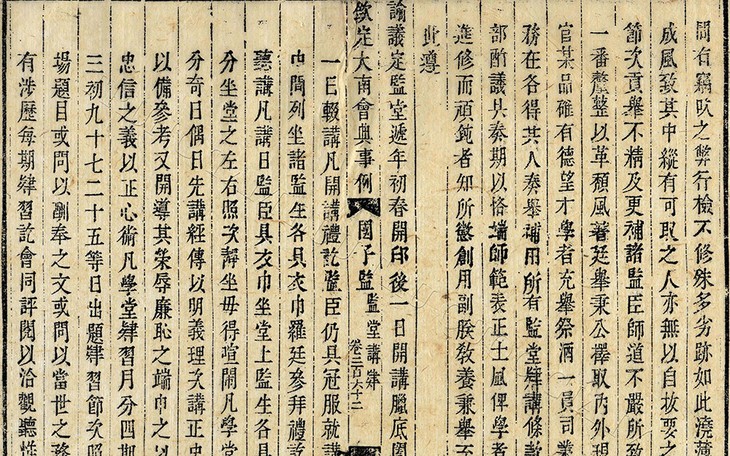 間有竊吹之弊行檢不修殊多劣跡如此澆薄
成風致其中縱有可取之人亦無以自拔要之
節次貢舉不精及更補諸監臣師道不嚴所致
一番釐整以革頹風著廷舉秉公擇取內外現
官某品確有德望才學者充舉祭酒一員司業
務在各得其人奏舉補用所有監堂肄講條款
部酌議具奏期以恪端師範表正士風俾學者
進修而頑鈍者知所懲創用副朕教養秉舉至
此遵
諭議定監堂遞年初春開印後一日開講臘底閣
欽定大南會典事例 國子監 監堂講肄 卷二百六十二
一日輟講凡開講禮訖監臣仍具冠服就講
中間列坐諸監生各具衣巾羅廷參拜禮訖
聽講凡講日監臣具衣巾坐堂上監生各具
分坐堂之左右照次坐毋得喧鬧凡學堂
分奇日偶日先講經傳以明義理次講正史
以備參考又開導其榮辱廉恥之端巾之以
忠信之義以正心術凡學堂肄習月分四期
三初九十七二十五等日出題肄習節次照
場題目或問以酬奉之文或問以當世之務
有涉歷每期肄習訖會同評閱以洽觀聽